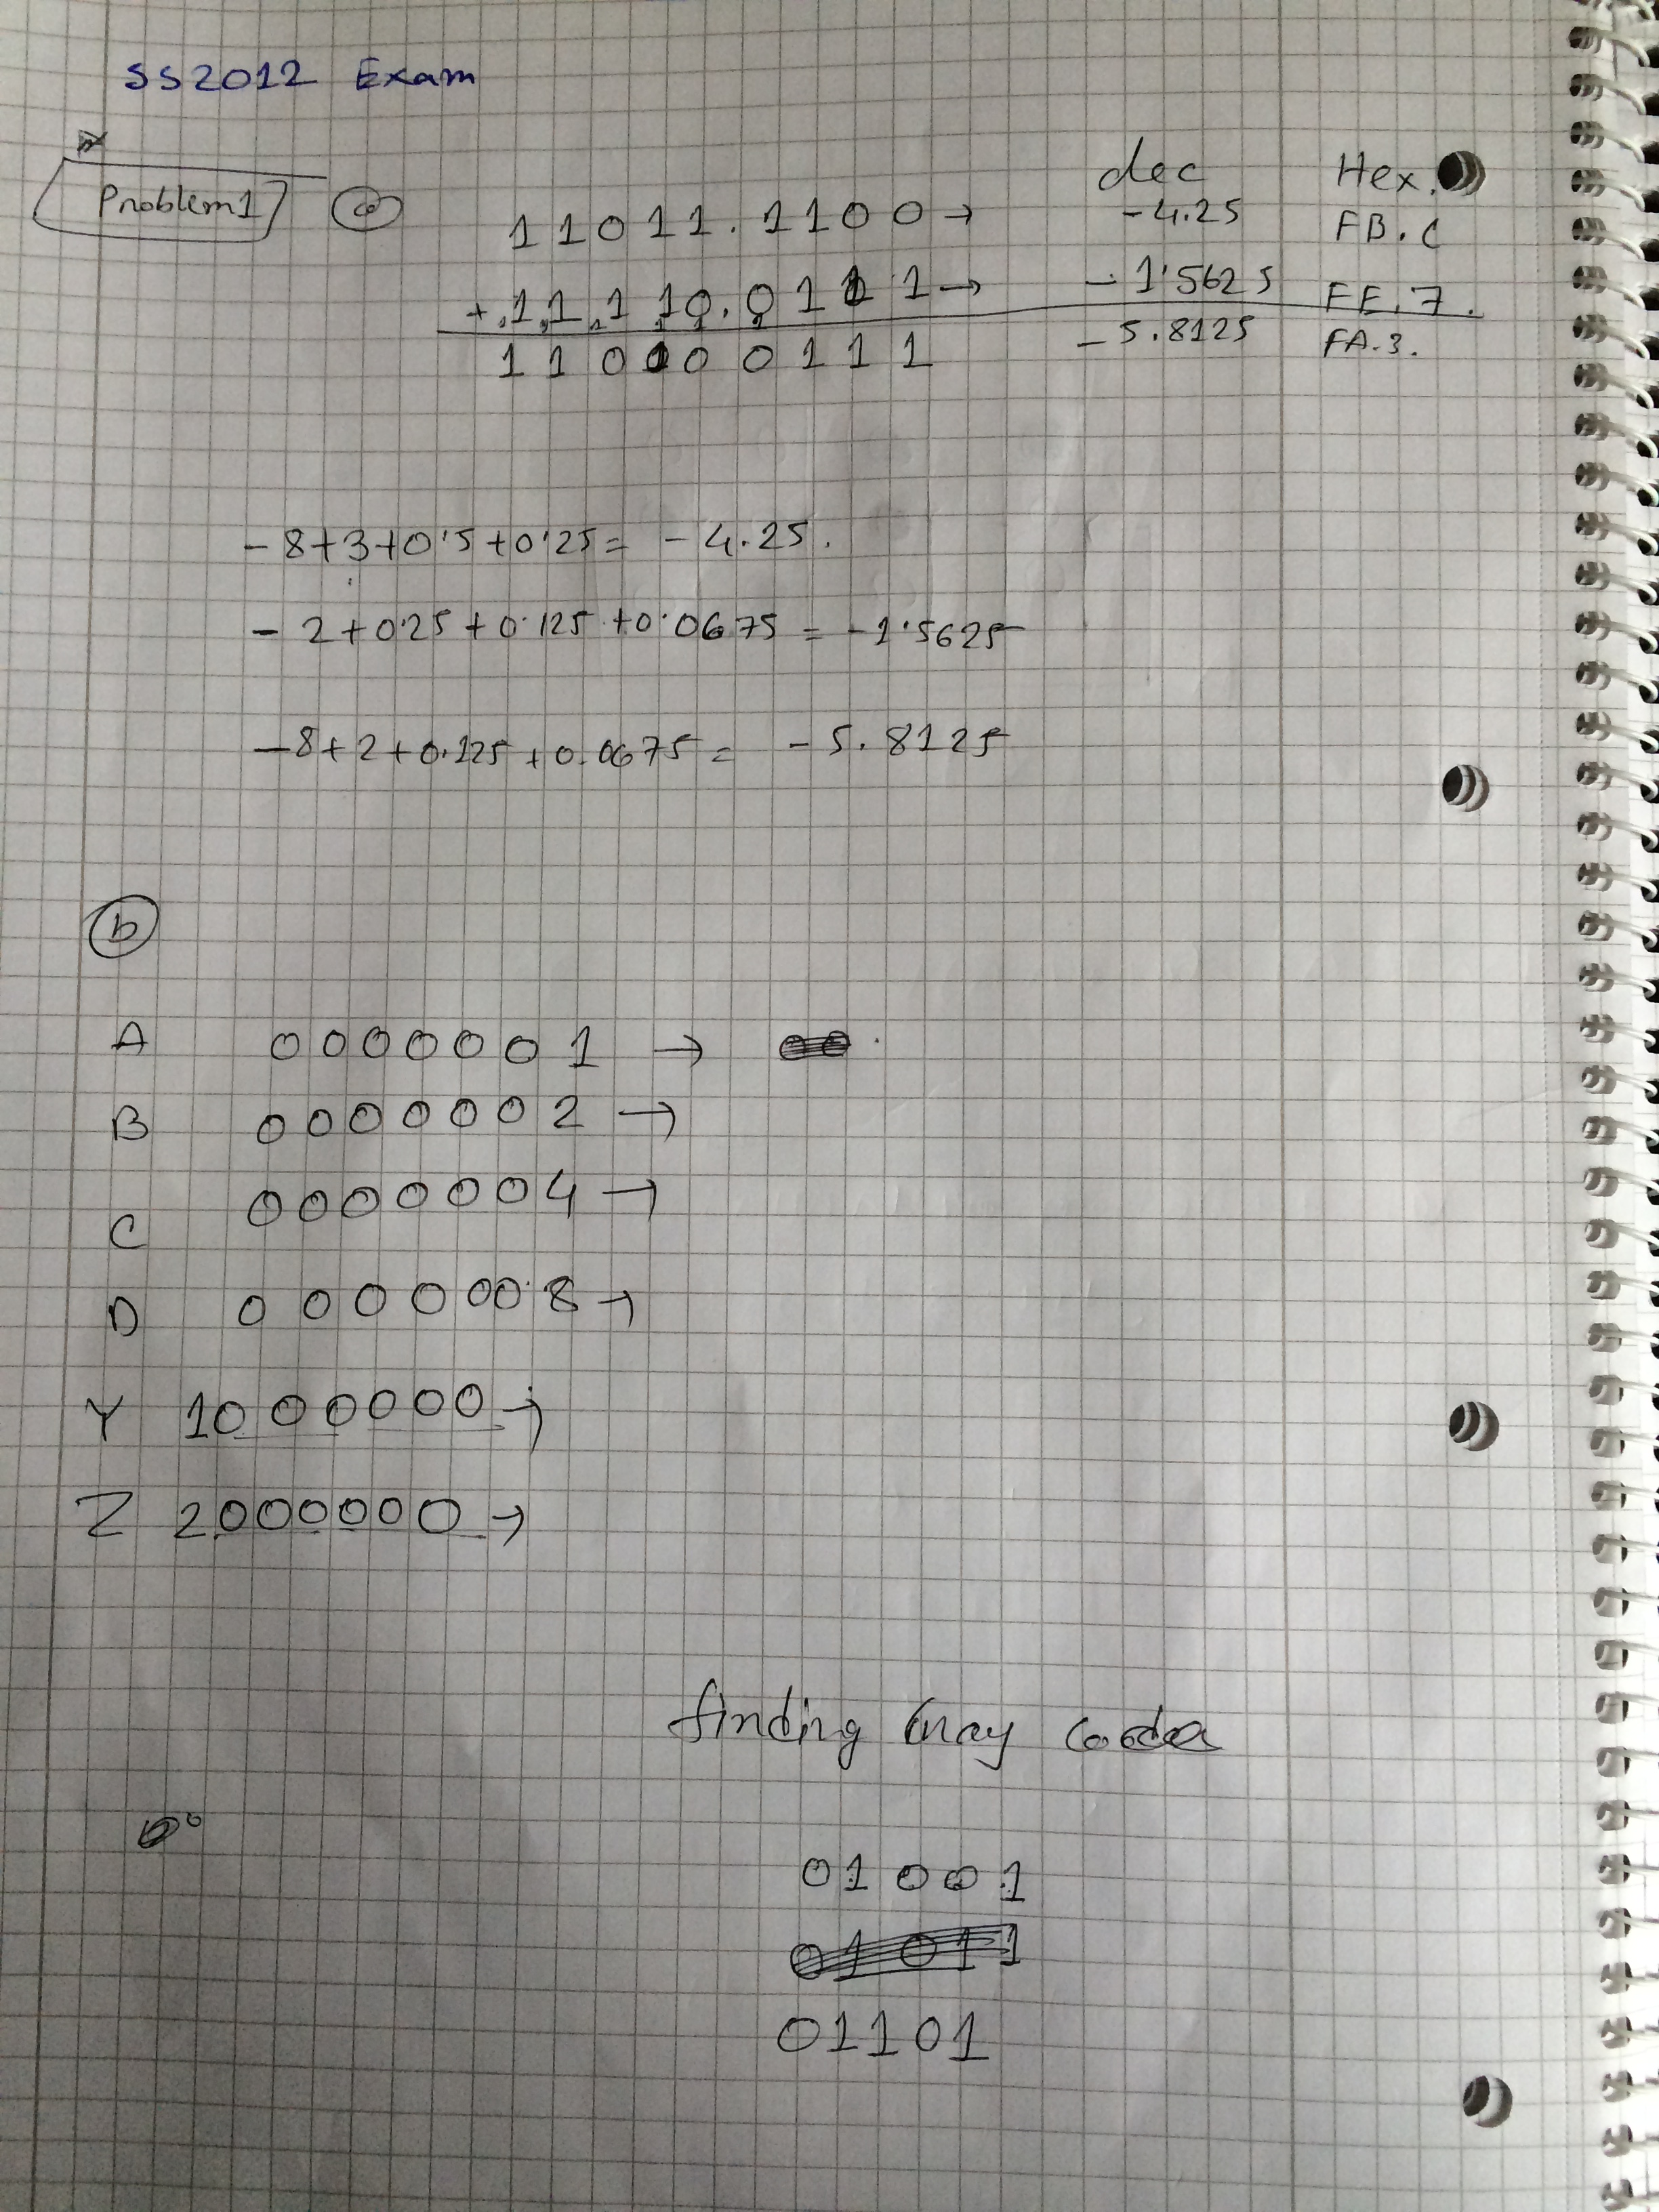 SS2012 Exam
Problem1 a
dec Hex.
11011.1100 → -4.25 FB.C
+11110.0111 → -1.5625 FE.7.
110100111 -5.8125 FA.3.
-8+3+0.5+0.25= -4.25.
-2+0.25+0.125+0.0675 = -1.5625
-8+2+0.125+0.0675 = -5.8125
b
A 0000001 →
B 0000002 →
C 0000004 →
D 0000008 →
Y 1000000 →
Z 2000000 →
finding Gray code
01001
01011
01101